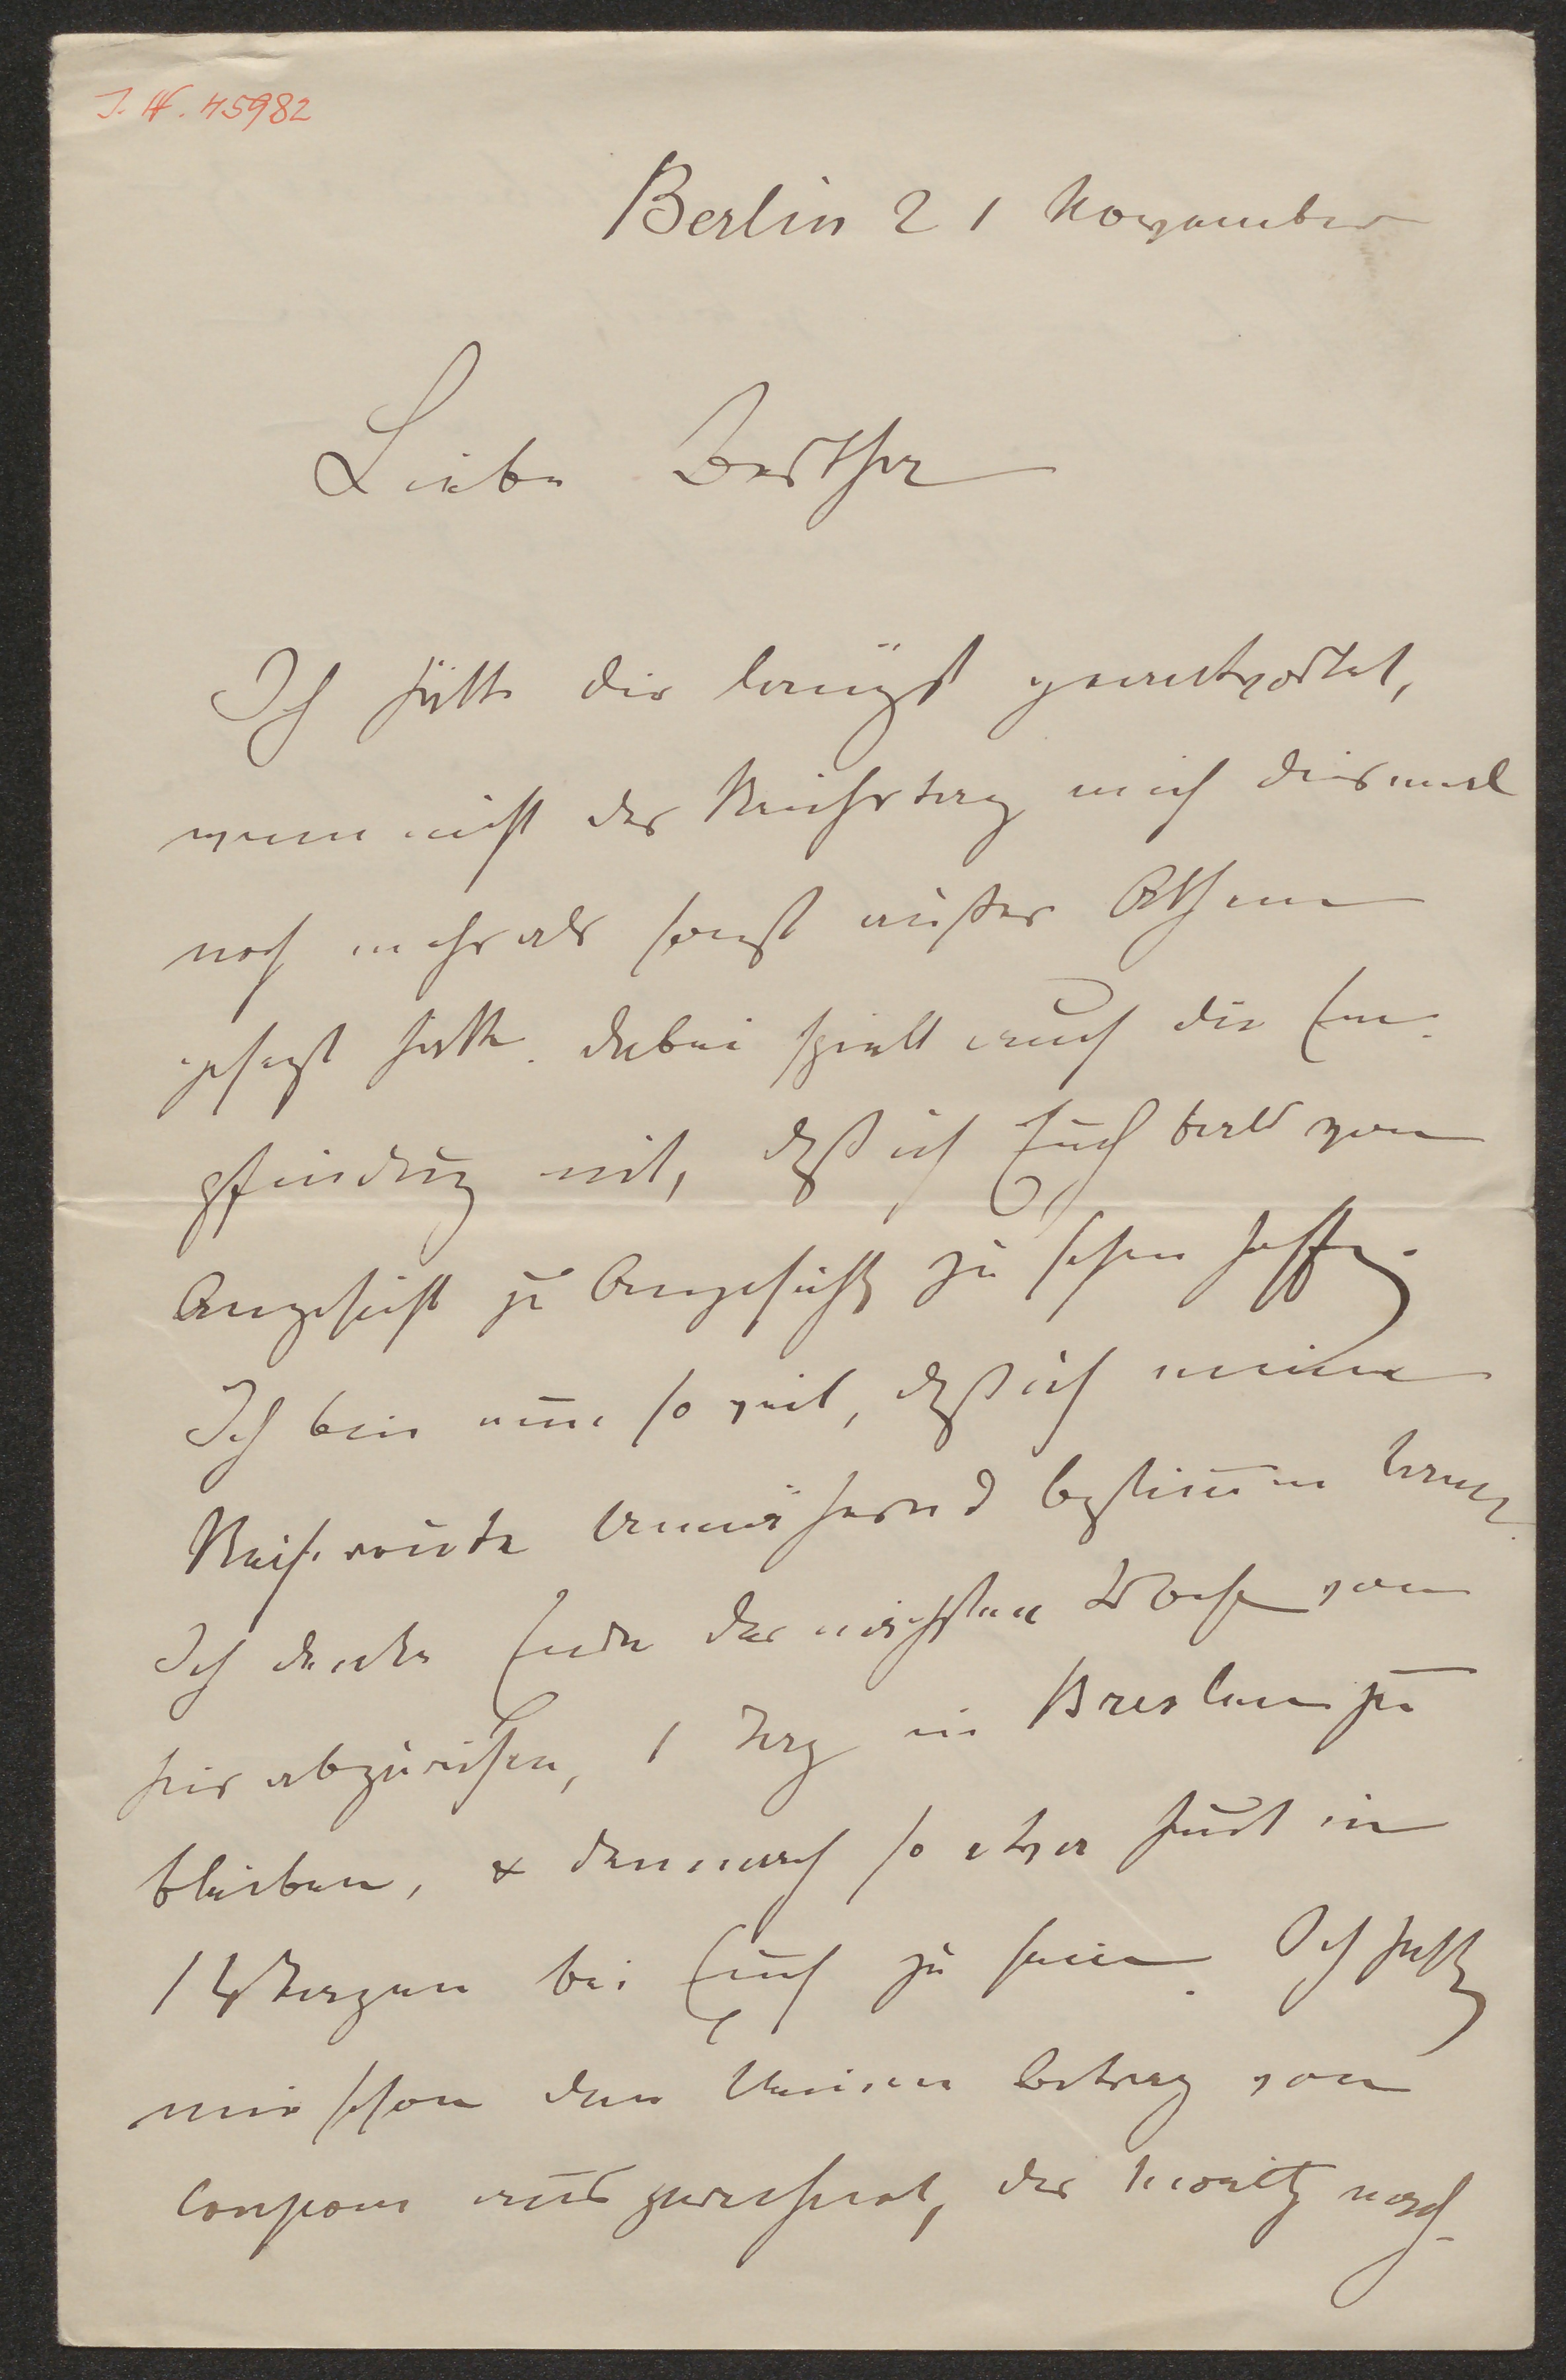 J. N. 45982
Berlin 21 November
Liebe Bertha
Ich hätte dir längst geantwortet,
wenn nicht der Reichstag mich diesmal
noch mehr als sonst außer Athem
gesetzt hätte. Dabei spielt auch die Em-
pfindung mit, daß ich Euch bald von
Angesicht zu Angesicht zu sehen hoffe.
Ich bin nun so weit, daß ich meine
Reiseroute annähernd bestimmen kann.
Ich denke Ende der nächsten Woche von
hier abzureisen, 1 Tag in Breslau zu
bleiben, & demnach so etwa heut in
14 Tagen bei Euch zu sein. Ich hatte
mir schon den kleinen Betrag von
Coupons ausgerechnet, der Moritz nach-